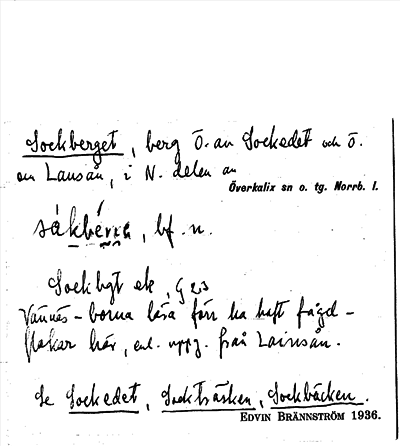 Sockberget, berg Ö. om Sockedet och Ö.
om Lansån, i N. delen av
Överkalix sn o. tg. Norrb. l.
bf. n.
Sockbgt ek, G 23
Vännäs-borna lära förr ha haft fågel-
flakar här, enl. uppg. från Lansån.
Se Sockedet, Sockträsken, Sockbäcken.
EDVIN BRÄNNSTRÖM 1936.